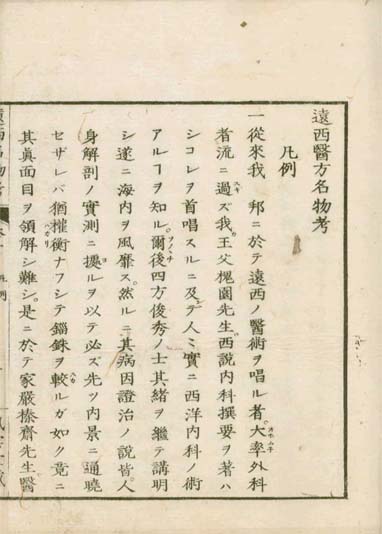 遠西醫方名物考
凡例
一從來我 邦ニ於テ遠西ノ醫術ヲ唱ル者。大率外科
者流ニ過ズ我王父槐園先生。西説内科撰要ヲ著ハ
シコレヲ首唱スルニ及デ人ミ實ニ西洋内科ノ術
アルヿヲ知ル。爾後四方俊秀ノ士其緒ヲ繼テ講明
シ遂ニ海内ヲ風靡ス。然ルニ其病因證治ノ説皆人
身解剖ノ實測ニ據ルヲ以テ必ズ先ツ内景ニ通曉
セザレバ猶權衡ナフシテ錙銖ヲ較ルガ如ク竟ニ
其眞面目ヲ領解シ難シ。是ニ於テ家嚴榛齋先生醫